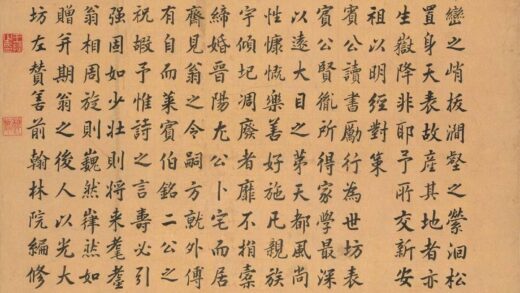 巒之峭拔澗壑之縈洄松
置身天表故産其地者亦
生嶽降非耶予所交新安
祖以明經對策
賓公讀書勵行為世坊表
賓公賢胤所得家學最深
以遠大目之第天都風尚
性慷慨樂善好施凡親族
宇傾圮凋廢者靡不捐橐
締婚晉陽尢公卜宅而居
齊見翁之令嗣方就外傅
有自而萊賓伯銘二公之
祝嘏予惟詩之言壽必引
强固如少壯則将来耄耋
翁相周旋則巍然嵂然如
贈并期翁之後人以光大
坊左贊善前翰林院編修